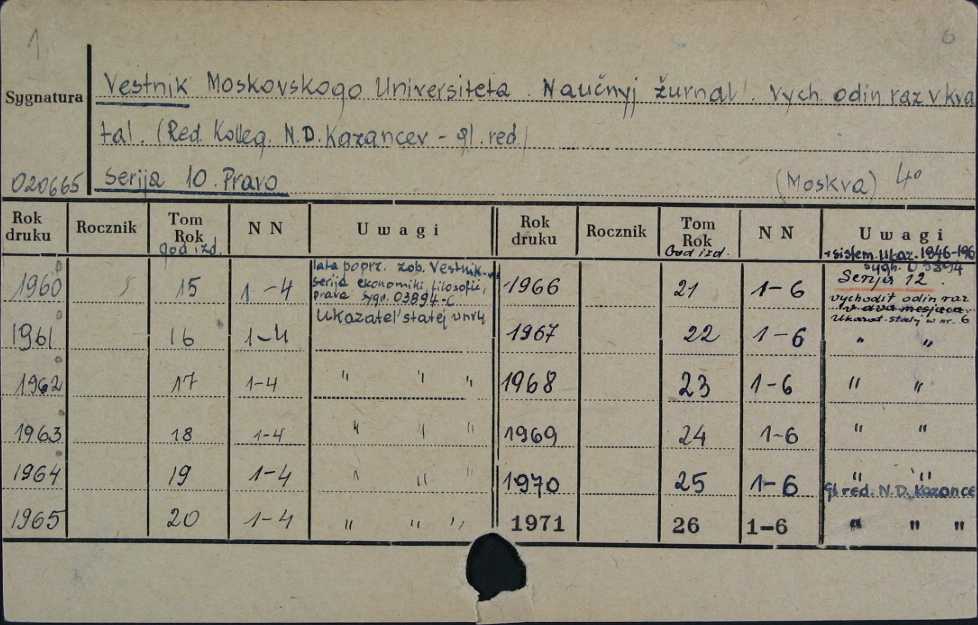 1 6
Sygnatura Vestnik Moskovskogo Universiteta. Naučnyj žurnal. vych. odin raz v kva
tal. (Red. Kolleg. N.D. Kazancev - gl. red)
020665 Serija 10. Pravo (Moskva) 4o
Rok druku Rocznik Tom Rok god izd. N N Uwagi Rok druku Rocznik Tom Rok God izd. N N Uwagi
+ sistem. ukaz. 1946-196
1960 15 1-4 lata poprz. zob. Vestnik
serija ekonomiki, filosofii,
prava sygn. 03894-C.
Ukazatel' statej v nr 4
1966 21 1-6 Serija 12.
vychodit odin raz
v dva mesjaca.
Ukazat. statej w nr. 6
1961 16 1-4 1967 22 1-6 " "
1962 17 1-4 " " " 1968 23 1-6 " "
1963 18 1-4 " " " 1969 24 1-6 " "
1964 19 1-4 " " " 1970 25 1-6 " "
gl red. N.D. Kazance
1965 20 1-4 " " " 1971 26 1-6 " " "